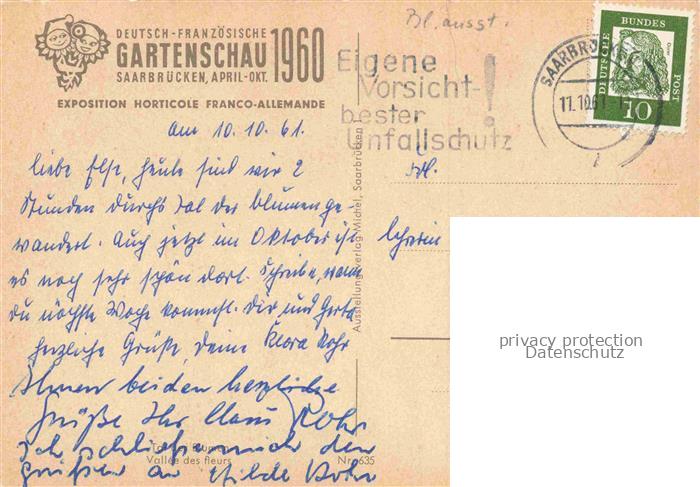 DEUTSCH-FRANZÖSISCHE
GARTENSCHAU 1960
SAARBRÜCKEN, APRIL-OKT.
EXPOSITION HORTICOLE FRANCO-ALLEMANDE
Bl. ausst.
Eigene
Vorsicht-
bester
Unfallschutz
!
SAARBRÜ
11.10.61
DEUTSCHE
BUNDES
POST
10
am 10.10.61.
liebe Else, heute sind wir 2
Stunden durchs Tal der Blumen ge-
wandert. Auch jetzt im Oktober ist
es noch sehr schön dort. Schreibe, wann
du nächste Woche kommst. Dir und Gerta
herzliche Grüße, deine Klara Rohr
Ihnen beiden herzliche
Grüße Ihr Hans Rohr
Ich schließe mich den
Grüßen an Hilde Rohr
Tal der Blumen
Vallée des fleurs
Nr. 635
Ausstellungsverlag Michel, Saarbrücken 1
privacy protection
Datenschutz